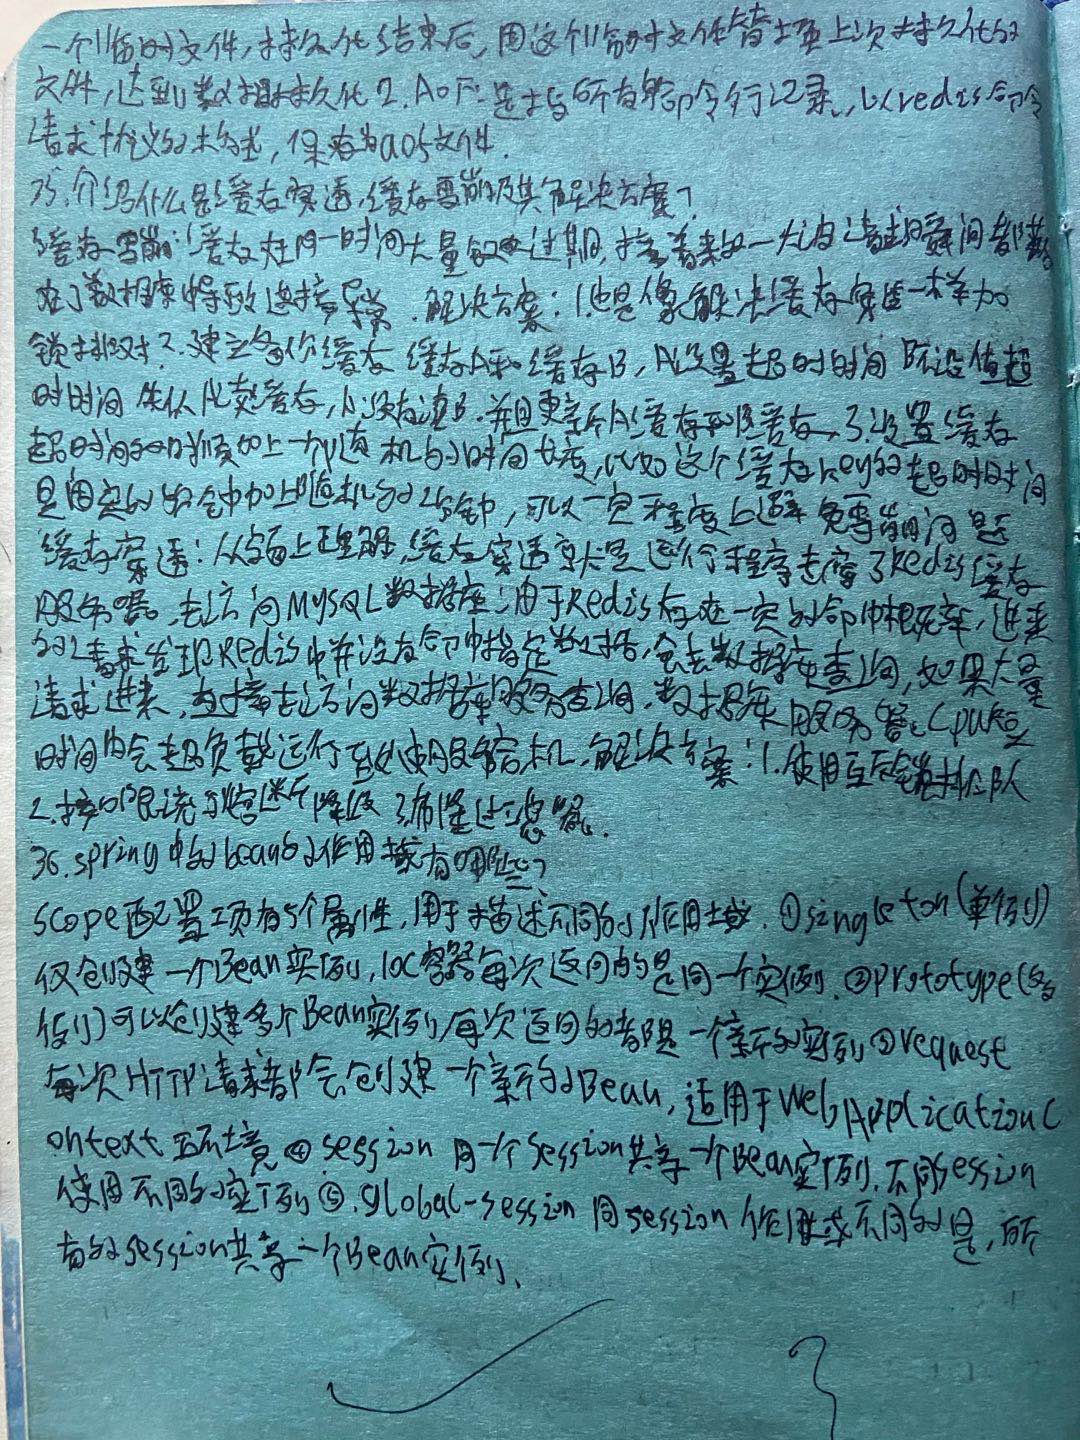 一个临时文件,持久化结束后,用这个临时文件替换上次持久化的
文件,达到数据持久化 2.AOF:是指所有的命令行记录,以redis命令
请求协议的格式,保存为aof文件.
35.介绍什么是缓存穿透,缓存雪崩及其解决方案?
缓存雪崩:缓存在同一时间大量的过期,接着来的一大波请求瞬间都落
在了数据库中导致连接异常.解决方案:1.也是像解决缓存穿透一样加
锁排队.2.建立备份缓存 缓存A和缓存B,A设置超时时间 B不设值超
时时间 先从A读缓存,A没有读B.并且更新A缓存和B缓存,3.设置缓存
超时时间的时候加上一个随机的时间长度,比如这个缓存key的超时时间
是固定的 分钟加上随机的2分钟,可以一定程度上避免雪崩问题
缓存穿透:从字面上理解,缓存穿透就是运行程序击穿了Redis缓存
服务器,去访问MySQL数据库:由于Redis存在一定的命中概率,进来
的请求发现Redis中并没有命中指定数据,会去数据库查询,如果大量
请求进来,直接去访问数据库服务查询,数据库服务器CPU短
时间内会超负载运行 致使服务宕机.解决方案:1.使用互斥锁排队
2.接口限流与熔断降级 3.布隆过滤器.
36.spring中的bean的作用域有哪些?
Scope配置项有5个属性,用于描述不同的作用域.①singleton(单例)
仅创建一个Bean实例,IOC容器每次返回的是同一个实例.②prototype(多
例)可以创建多个Bean实例,每次返回的都是一个新的实例③request
每次HTTP请求都会创建一个新的Bean,适用于WebApplicationC
ontext环境④session 同一个Session共享一个Bean实例.不同session
使用不同的实例⑤.global-session 同session作用域不同的是,所
有的session共享一个Bean实例.